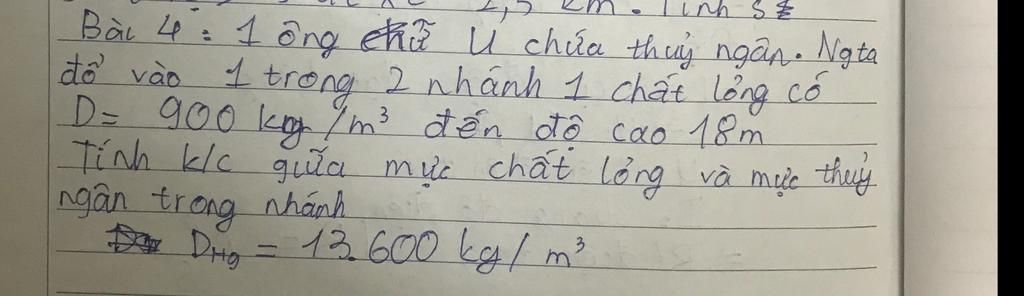 2,5 km. Tính s
Bài 4: 1 ống chữ U chứa thuỷ ngân. Ngta
đổ vào 1 trong 2 nhánh 1 chất lỏng có
D= 900 kg/m³ đến độ cao 18m
Tính k/c giữa mực chất lỏng và mực thuỷ
ngân trong nhánh
D_Hg = 13.600 kg/m³